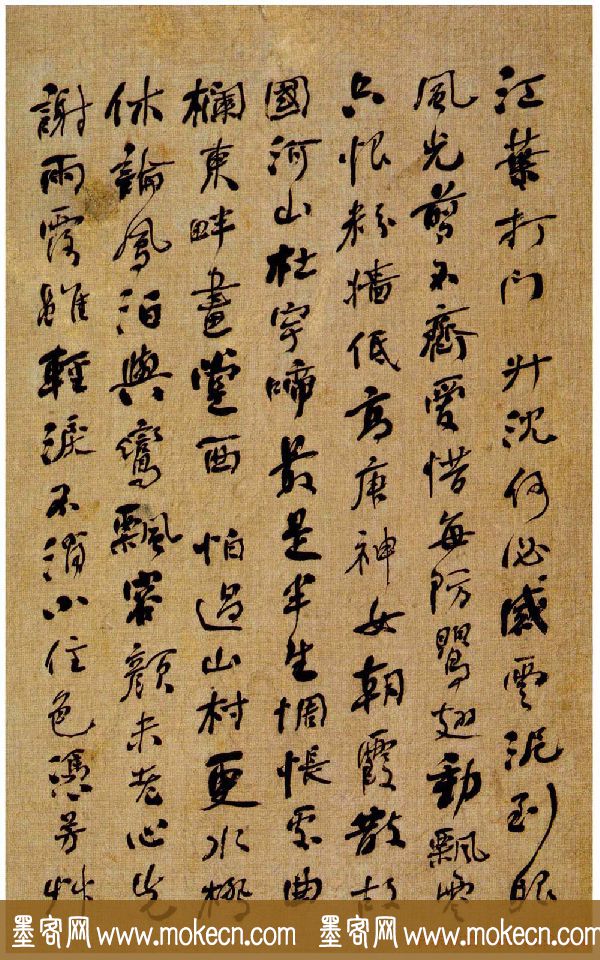 江葉打門 升沈何必感雲泥到眼
風光剪不齊愛惜每防鸎翅動飄零
只恨粉墻低高唐神女朝霞散故
國河山杜宇啼最是半生惆悵處曲
欄東畔畫堂西 怕過山村更水橋
休論鳳泊與鸞飄容顏未老心先
謝雨露雖輕淚不消小住色憑芳草
墨客网 www.mokecn.com 墨客网 www.mokecn.com